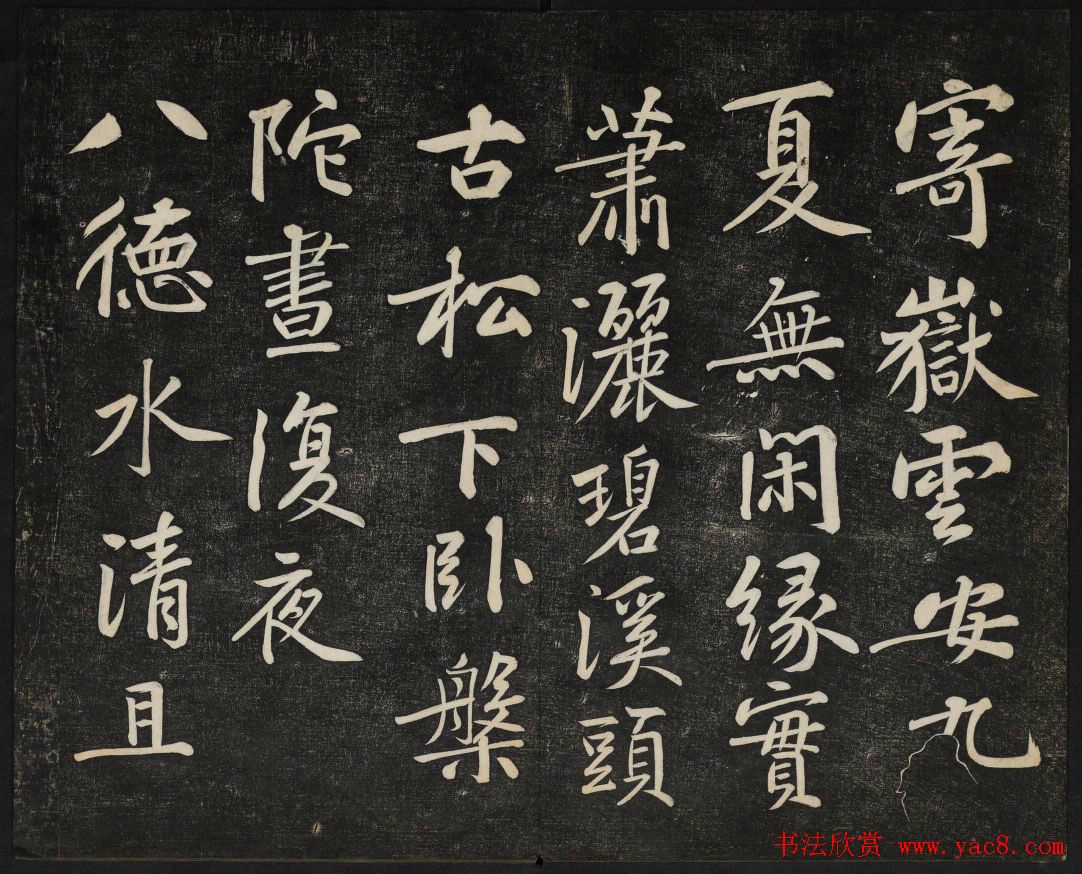 寄嶽雲安九
夏無閑緣實
蕭灑碧溪頭
古松下卧槃
陀晝復夜
八德水清且
书法欣赏 www.yac8.com